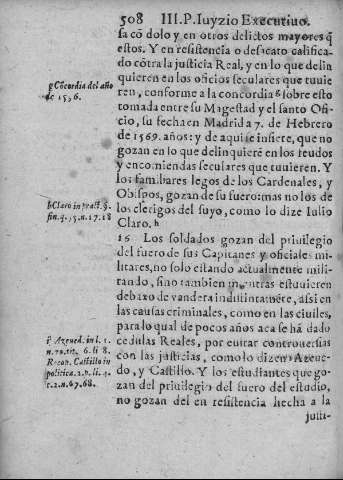 508 III.P.Iuyzio Executiuo.
sa cõ dolo y en otros delictos mayores q̃
estos. Y en resistencia o desacato califica
do cõtra la justicia Real, y en lo que delin
quieren en los oficios seculares que tuuie
ren, conforme a la concordia g sobre esto
tomada entre su Magestad y el santo Ofi
cio, su fecha en Madrid a 7. de Hebrero
de 1569. años: y de aqui se infiere, que no
gozan en lo que delinquierẽ en los feudos
y encomiendas seculares que tuuieren. Y
los familiares legos de los Cardenales, y
Obispos, gozan de su fuero: mas no los de
los clerigos del suyo, como lo dize Iulio
Claro. h
15 Los soldados gozan del priuilegio
del fuero de sus Capitanes y oficiales mi
litares, no solo estando actualmente mili-
tando, sino tambien mientras estuuieren
debaxo de vandera indistintamẽte, assi en
las causas criminales, como en las ciuiles,
para lo qual de pocos años aca se hã dado
cedulas Reales, por euitar controuersias
con las justicias, como lo dizen Azeue-
do, y Castillo. Y los estudiantes que go-
zan del priuilegio del fuero del estudio,
no gozan del en resistencia hecha a la
justi-
g Cõcordia del año
de 1569.
h Claro in pract. §.
fin. q. 35. n. 17. 18
i Azeued. in l. 1.
n. 20. tit. 6. li 8.
Recop. Castillo in
politica. 2. p. li. 4.
c. 2. n. 67. 68.